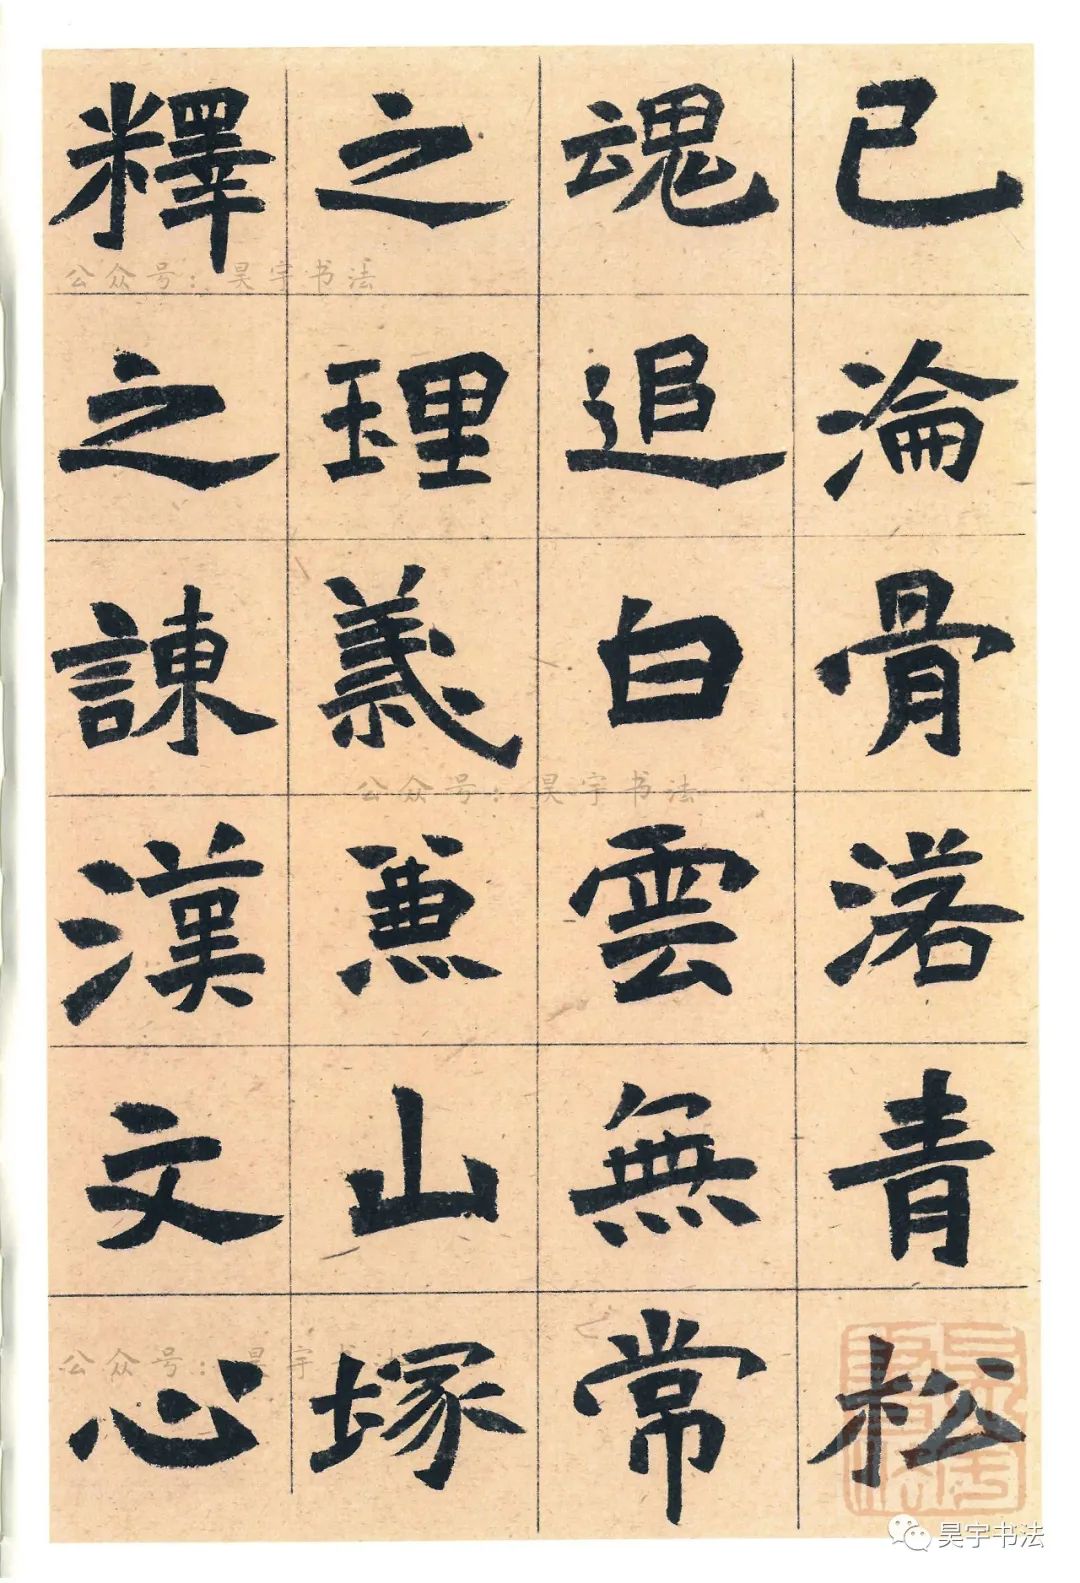 已淪骨落青松
魂追白雲無常
之理義蒹山塚
釋之諫漢文心
公众号：昊宇书法
公众号：昊宇书法
公众号：昊宇书法
昊宇书法